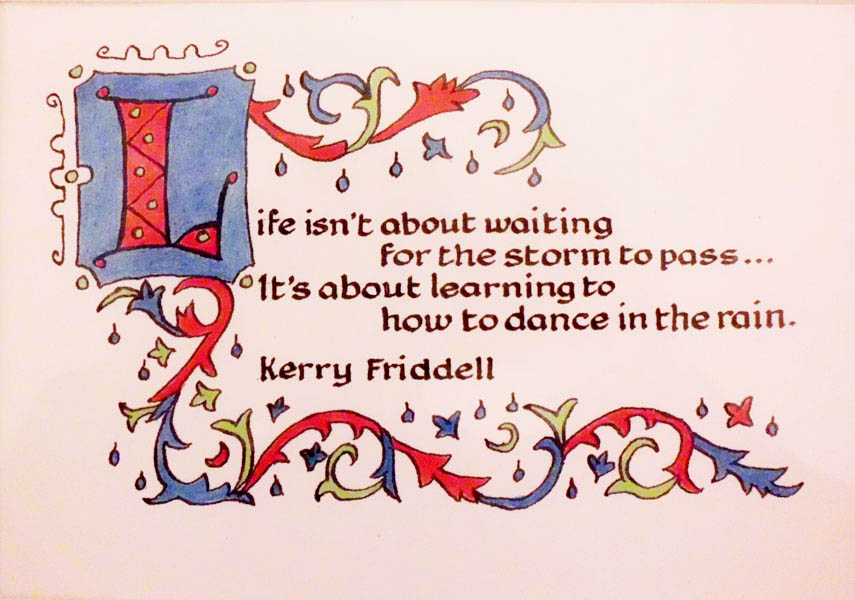 Life isn't about waiting
for the storm to pass...
It's about learning to
how to dance in the rain.
Kerry Friddell